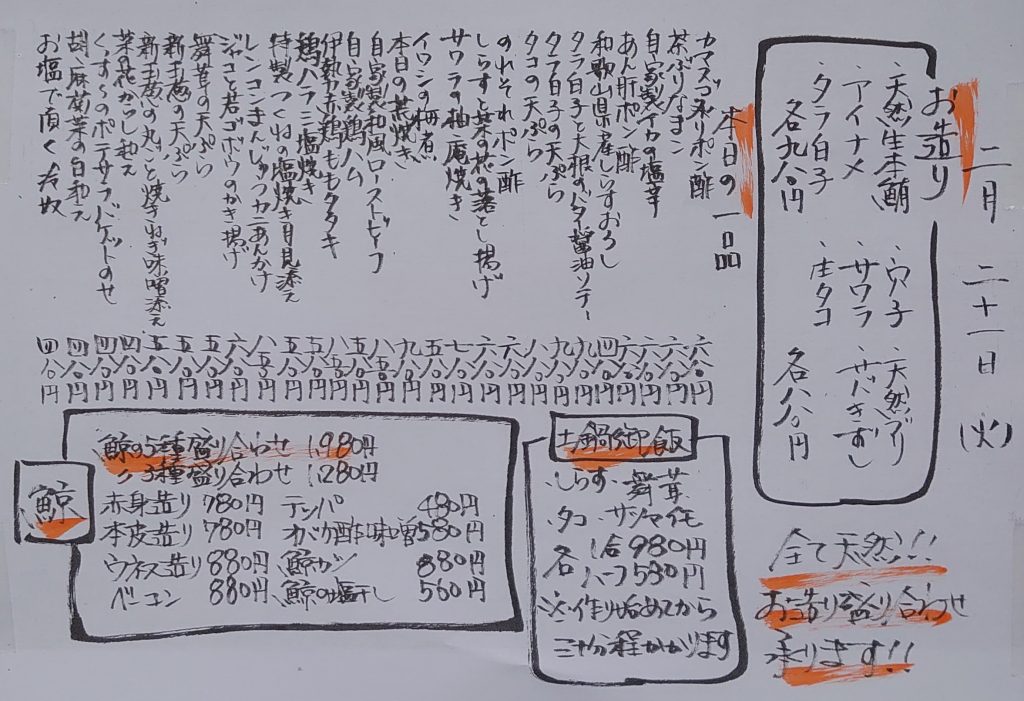 二月二十一日(火)
お造り
・天然生本鮪
・アイナメ
・タラ白子
各九八〇円
・穴子
・サワラ
・庄タコ
・天然ブリ
・サバきずし
各八八〇円
全て天然!!
お造り盛り合わせ
承ります!!
本日の一品
カマスゴ炙りポン酢 六八〇円
茶ぶりなまこ 六八〇円
自家製イカの塩辛 六八〇円
あん肝ポン酢
和歌山県産しらすおろし
タラ白子と大根のバター醤油ソテー
タラ白子の天ぷら
タコの天ぷら
のれそれポン酢
しらすと菜の花の落とし揚げ
サワラの柚庵焼き
イワシの梅煮
本日の荒炊き
自家製和風ローストビーフ
自家製鶏ハム
伊勢赤鶏ももタタキ
鶏ハラミ塩焼き
特製つくねの塩焼き月見添え
レンコンまんじゅうカニあんかけ
ジャコと君ゴボウのかき揚げ
舞茸の天ぷら
新玉葱の天ぷら 五八〇円
新玉葱の丸ごと焼きねぎ味噌添え
菜の花からし和え 四八〇円
くんすりのポテサラバケットのせ 四八〇円
胡麻菊菜の白和え 四八〇円
お塩で頂く冷奴 四八〇円
土鍋御飯
・しらす ・舞茸
・タコ ・サツマイモ
各 1合 980円
各 ハーフ 580円
※作り始めてから
三十分程かかります
鯨
鯨の5種盛り合わせ 1,980円
〃3種盛り合わせ 1,280円
赤身造り 780円 テンパ 480円
本皮造り 780円 オバケ酢味噌 580円
ウネス造り 880円 鯨カツ 880円
ベーコン 880円 鯨の塩干し 560円